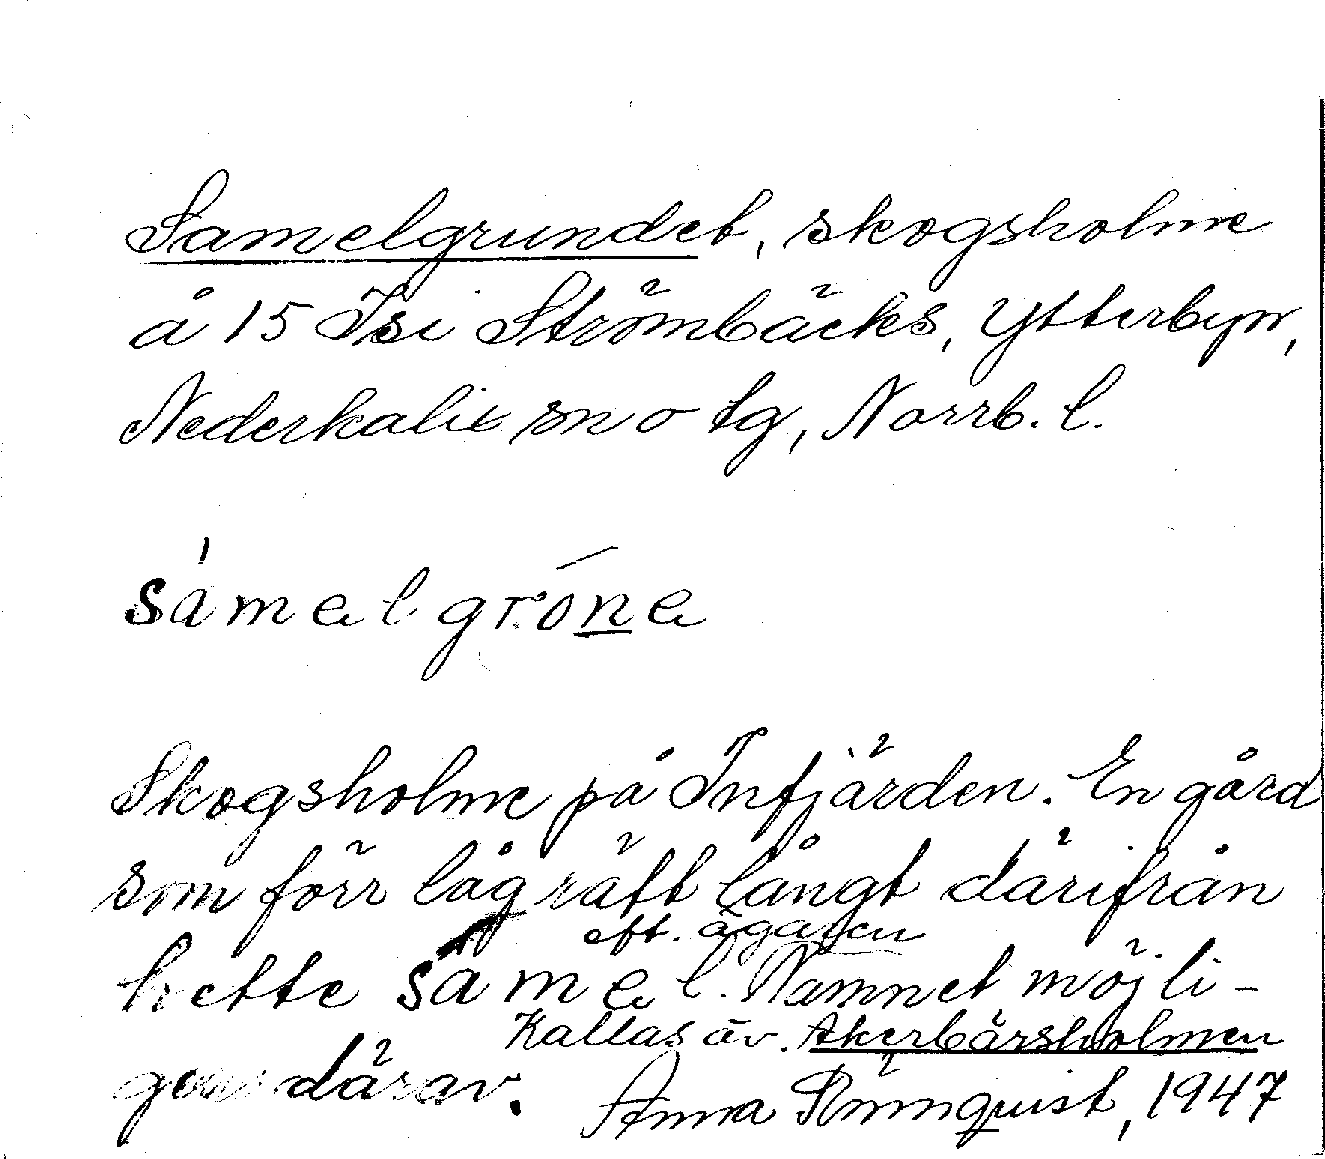 Samelgrundet, skogsholme
å 15 Isi Strömbäcks, Ytterbyn,
Nederkalix sn o tg, Norrb. l.
sámelgróne
Skogsholme på Infjärden. En gård
som förr låg rätt långt därifrån
eft. ägaren
hette sámel. Namnet möjli-
Kallas äv. Åkerbärsholmen
gen därav.
Anna Rönnquist, 1947